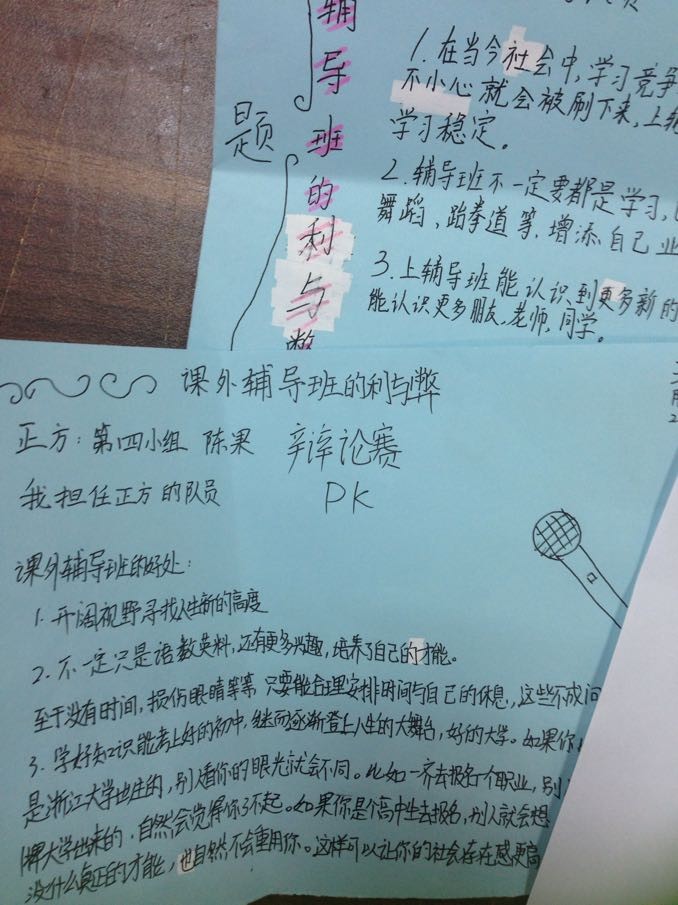 辅导班的利与弊
题
1.在当今社会中,学习竞争
不小心就会被刷下来,上辅
学习稳定。
2.辅导班不一定要都是学习,
舞蹈、跆拳道等,增添自己业
3.上辅导班能认识到更多新的
能认识更多朋友,老师,同学。
课外辅导班的利与弊
正方:第四小组 陈果 辩论赛
我担任正方的队员 PK
课外辅导班的好处:
1.开阔视野寻找人生新的高度
2.不一定只是语数英料,还有更多兴趣,培养了自己的才能。
至于没有时间,损伤眼睛等等 只要能合理安排时间与自己的休息,这些不成问
3.学好知识能考上好的初中,继而逐渐登上人生的大舞台,好的大学。如果你
是浙江大学出生的,别人看你的眼光就会不同。比如一齐去报名个职业,别
牌大学出来的,自然会觉得你了不起。如果你是个高中生去报名,别人就会想
没什么真正的才能,也自然不会重用你。这样可以让你的社会存在感更高